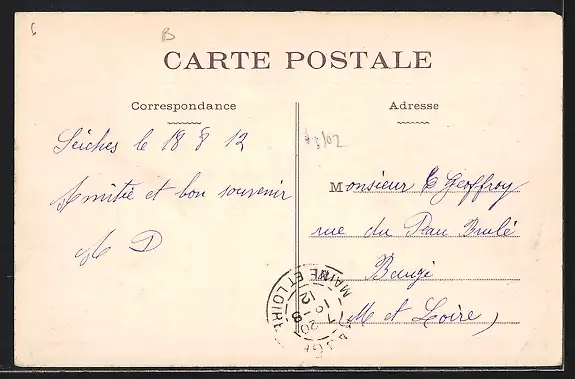 6
B
CARTE POSTALE
Correspondance
Adresse
Seiches le 18 8 12
Amitié et bon souvenir
M D
Monsieur E Geoffroy
rue du Pau Brulé
Baugé
(M et Loire)
MAINE ET LOIRE
12